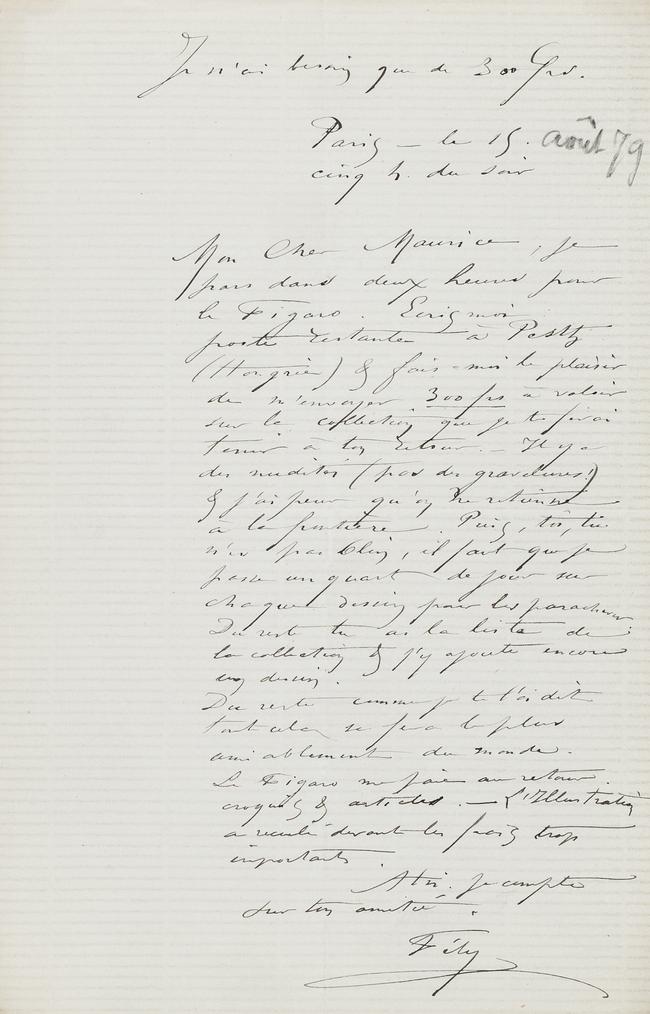 Je n'ai besoin que de 300 frs.
Paris – le 15. août 79
cinq h. du soir
Mon Cher Maurice, je
pars dans deux heures pour
le Figaro. Ecris moi
poste restante à Pesth
(Hongrie) & fais-moi le plaisir
de m'envoyer 300 frs à valoir
sur la collection que je te ferai
tenir à ton retour. – Il y a
des nudités (pas des gravelures!)
& j'ai peur qu'on ne retienne
à la frontière. Puis, toi, tu
n'es pas Blin, il faut que je
passe un quart de jour sur
chaque dessin pour les parachever.
Du reste tu as la liste de
la collection & j'y ajoute encore
un dessin.
Du reste comme je te l'ai dit
tout cela se fera le plus
amiablement du monde.
Le Figaro me paie au retour.
croquis & articles. – L'Illustration
a reculé devant les frais trop
importants.
A toi. je compte
sur ton amitié.
Fély